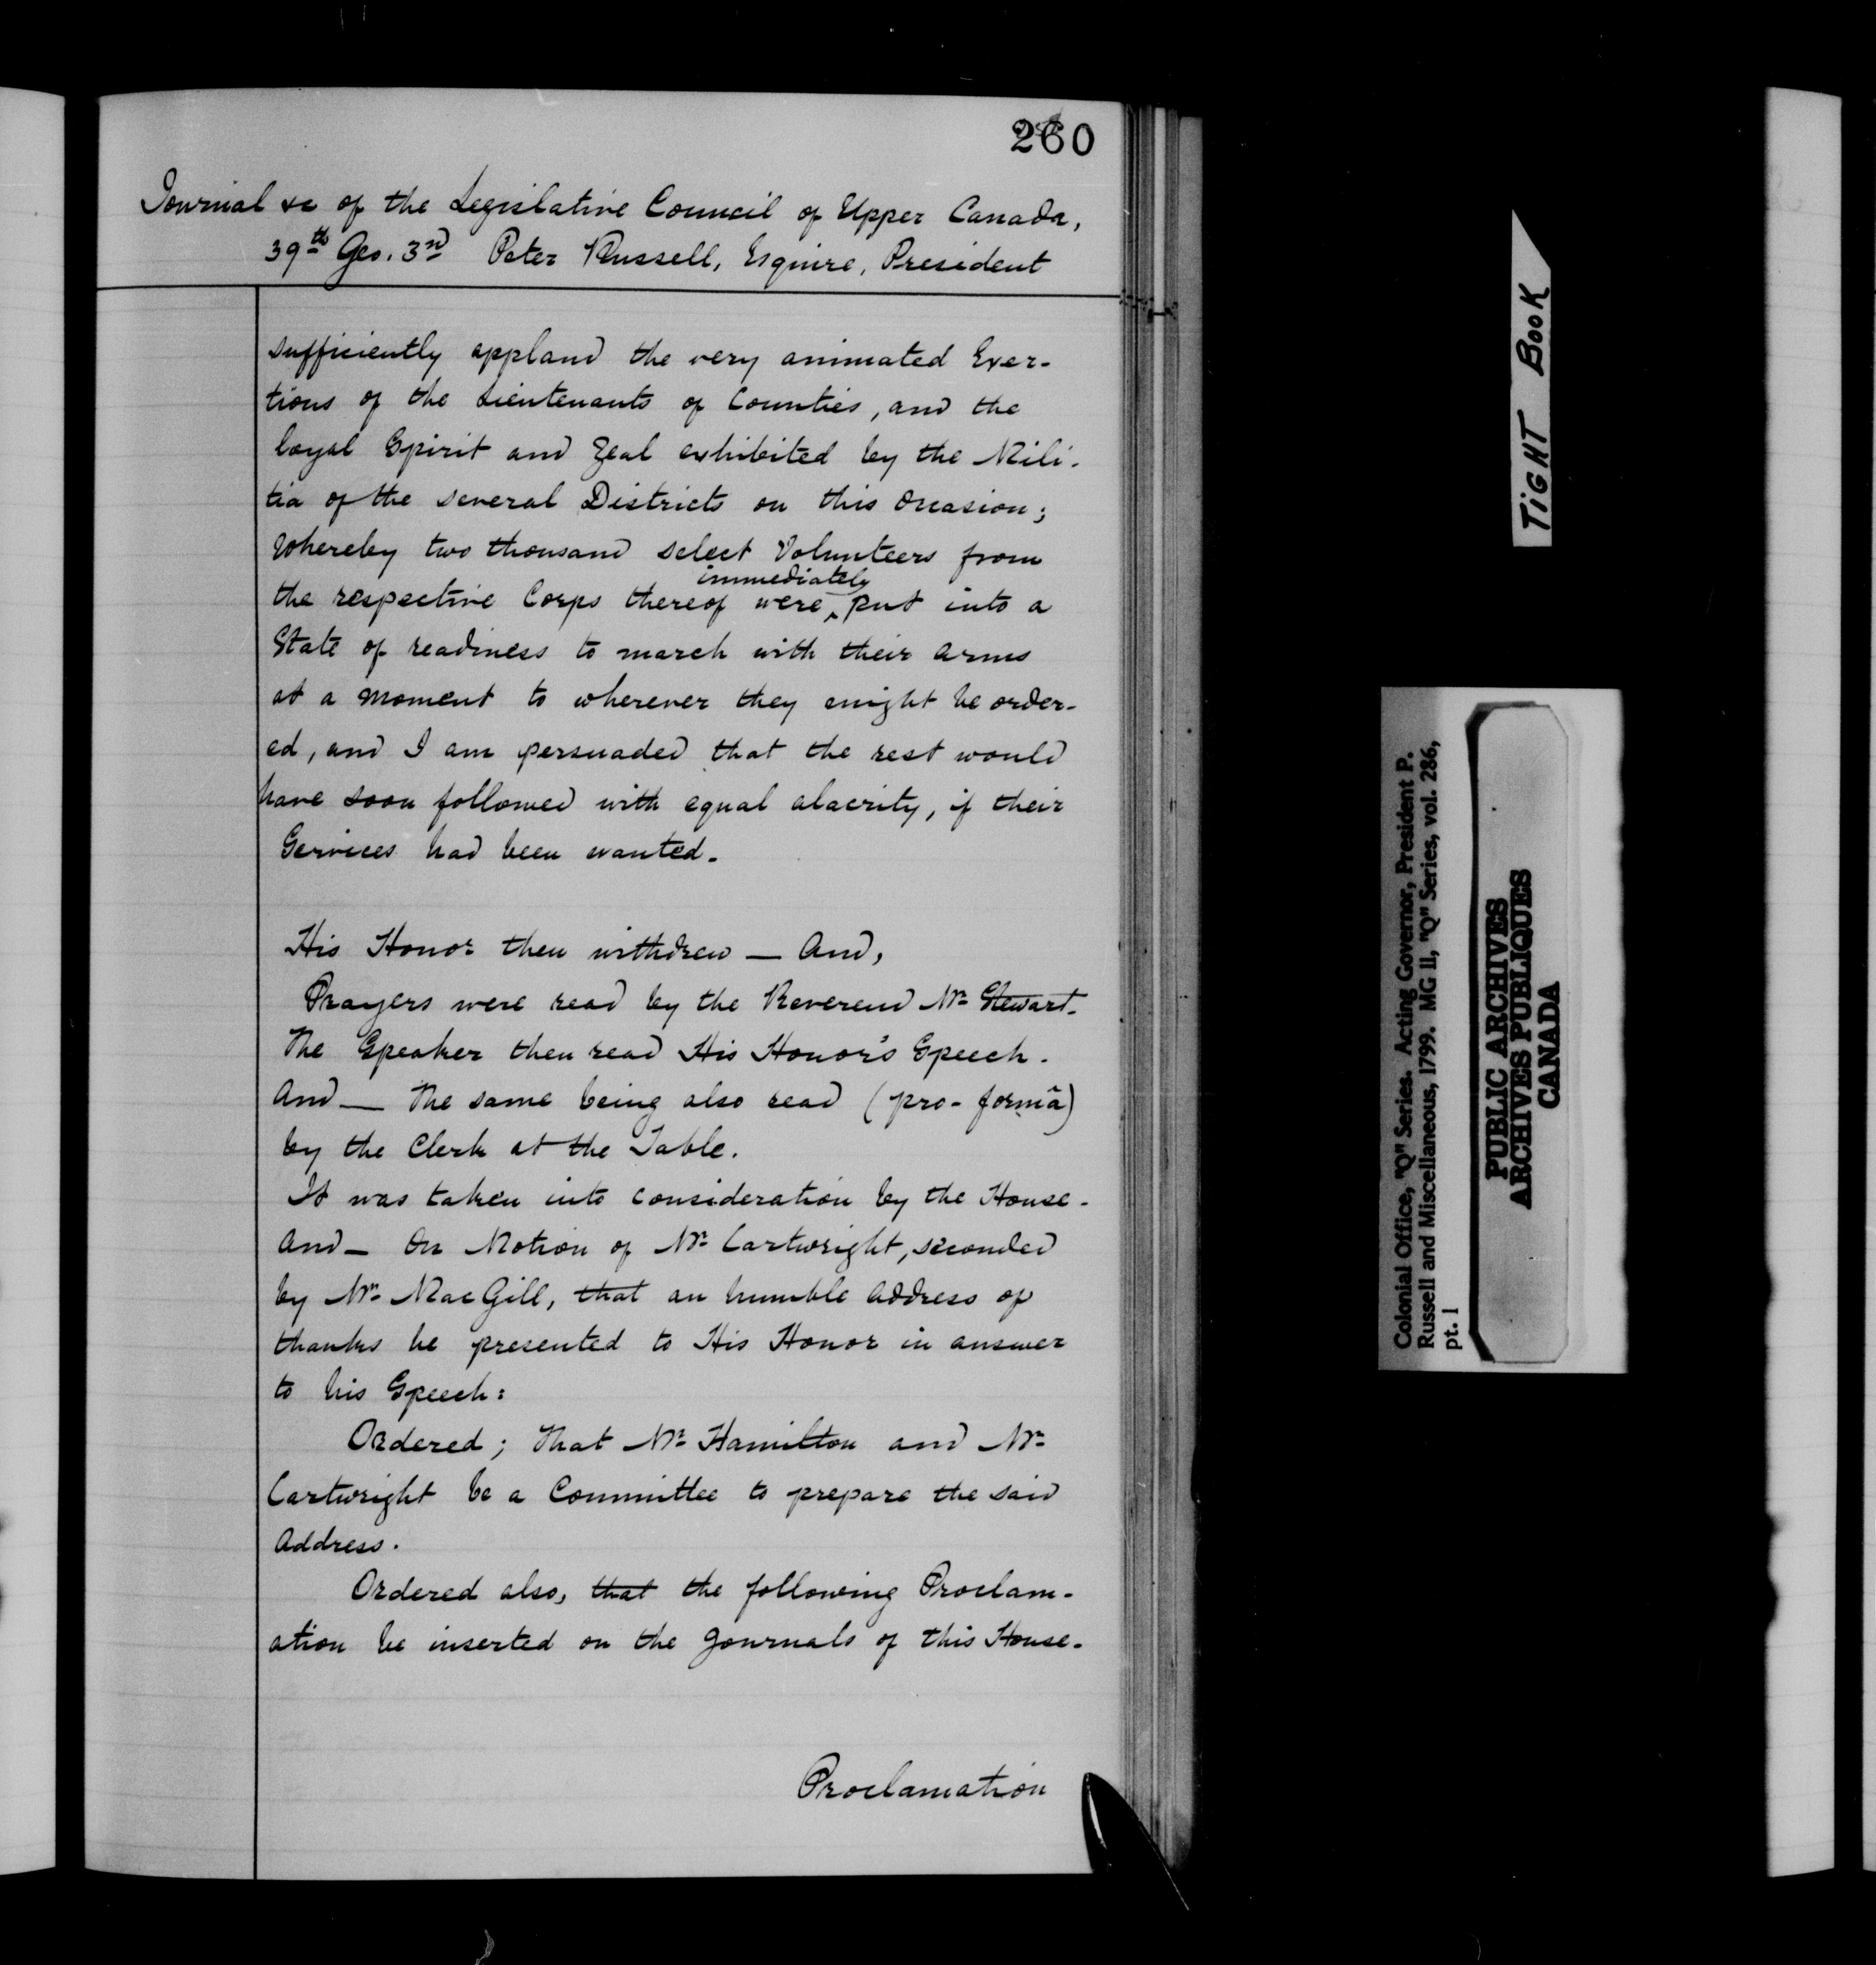 260
Journal &c of the Legislative Council of Upper Canada,
39th Geo. 3rd Peter Russell, Esquire, President
sufficiently applaud the very animated Exer-
tions of the Lieutenants of Counties, and the
loyal Spirit and Zeal exhibited by the Mili-
tia of the several Districts on this Occasion;
Whereby two thousand select Volunteers from
immediately
the respective Corps thereof were ‸ put into a
State of readiness to march with their Arms
at a moment to wherever they might be order-
ed, and I am persuaded that the rest would
have soon followed with equal alacrity, if their
Services had been wanted.
His Honor then withdrew — And,
Prayers were read by the Reverend Mr. Stewart.
The Speaker then read His Honor's Speech.
And — The same being also read (pro-formâ)
by the Clerk at the Table.
It was taken into consideration by the House-
And — On Motion of Mr. Cartwright, seconded
by Mr. MacGill, that an humble Address of
thanks be presented to His Honor in answer
to his Speech:
Ordered; That Mr. Hamilton and Mr.
Cartwright be a Committee to prepare the said
Address.
Ordered also, that the following Proclam-
ation be inserted on the Journals of this House.
Proclamation
TIGHT BOOK
Colonial Office, "Q" Series. Acting Governor, President P.
Russell and Miscellaneous, 1799. MG 11, "Q" Series, vol. 286,
pt. 1
PUBLIC ARCHIVES
ARCHIVES PUBLIQUES
CANADA